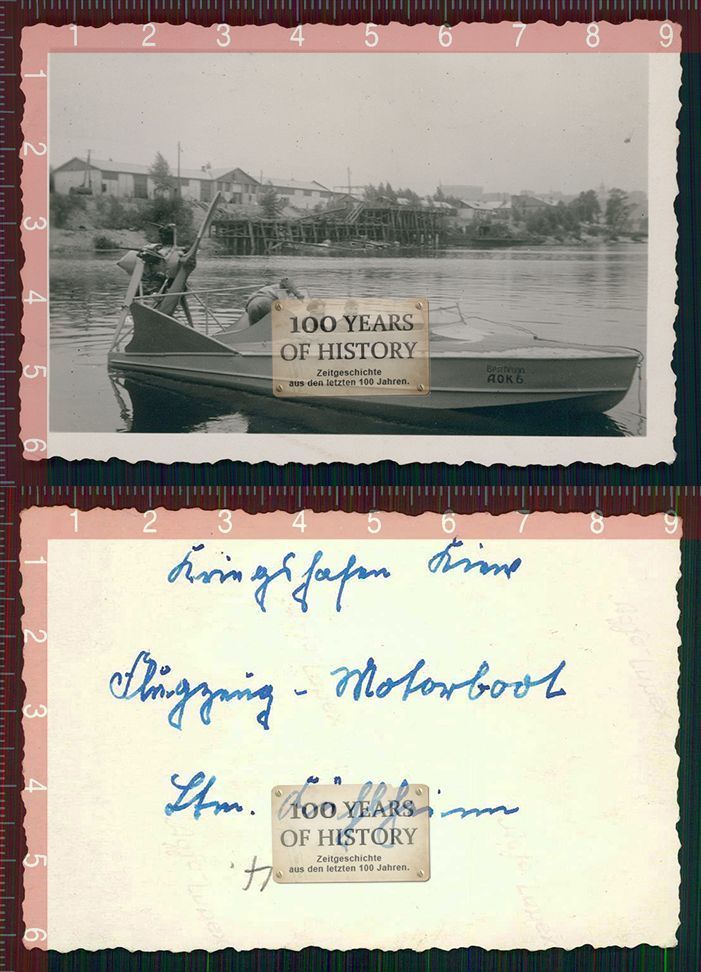 1 2 3 4 5 6 7 8 9
1
2
3
4
5
6
100 YEARS
OF HISTORY
Zeitgeschichte
aus den letzten 100 Jahren.
ДОКБ
1 2 3 4 5 6 7 8 9
1
2
3
4
5
6
Kriegshafen Kiew
Flugzeug - Motorboot
Ltn.
100 YEARS
OF HISTORY
Zeitgeschichte
aus den letzten 100 Jahren.